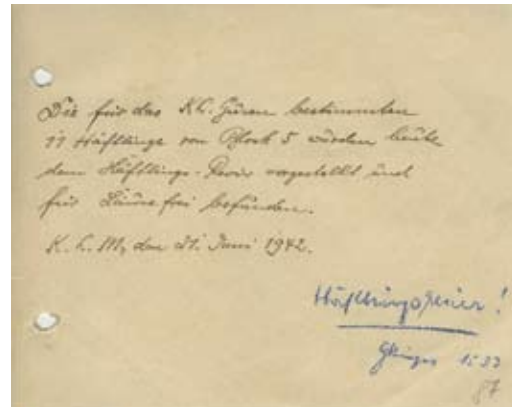 Die für das K.L. Gusen bestimmten
11 Häftlinge von Block 5 wurden heute
dem Häftlings-Revier vorgestellt und
für Läusefrei befunden.
K.L.M, den 21. Juni 1942.
Häftlingsrevier!
87